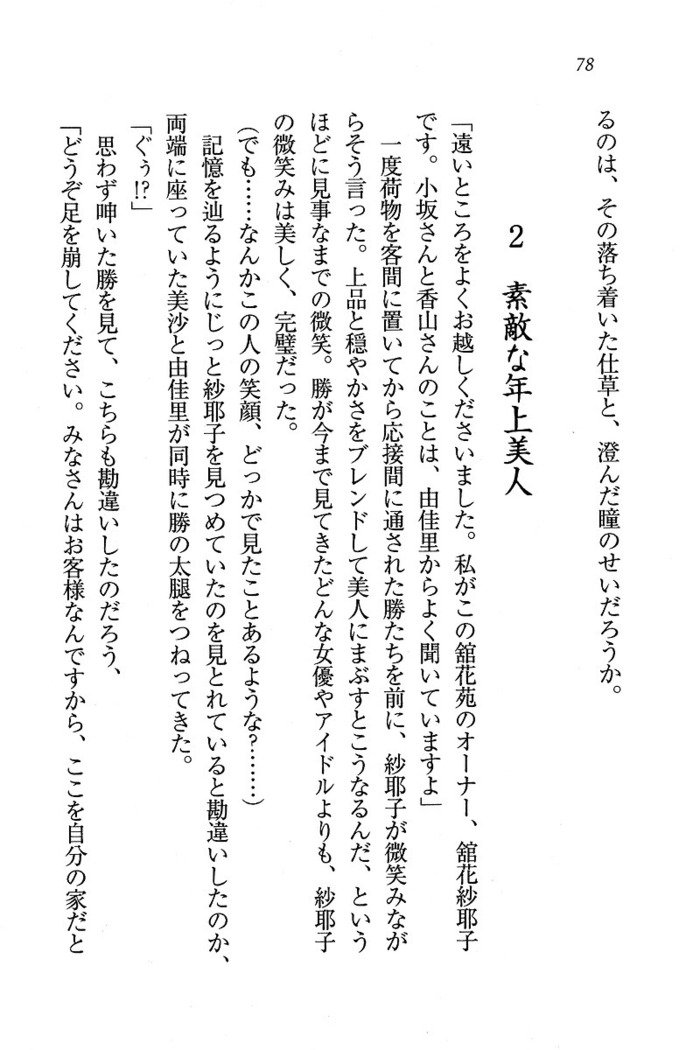 78
るのは、その落ち着いた仕草と、澄んだ瞳のせいだろうか。
2 素敵な年上美人
「遠いところをよくお越しくださいました。私がこの舘花苑のオーナー、舘花紗耶子
です。小坂さんと香山さんのことは、由佳里からよく聞いていますよ」
一度荷物を客間に置いてから応接間に通された勝たちを前に、紗耶子が微笑みなが
らそう言った。上品と穏やかさをブレンドして美人にまぶすとこうなるんだ、という
ほどに見事なまでの微笑。勝が今まで見てきたどんな女優やアイドルよりも、紗耶子
の微笑みは美しく、完璧だった。
(でも……なんかこの人の笑顔、どっかで見たことあるような?……)
記憶を辿るようにじっと紗耶子を見つめていたのを見とれていると勘違いしたのか、
両端に座っていた美沙と由佳里が同時に勝の太腿をつねってきた。
「ぐぅ!?」
思わず呻いた勝を見て、こちらも勘違いしたのだろう、
「どうぞ足を崩してください。みなさんはお客様なんですから、ここを自分の家だと